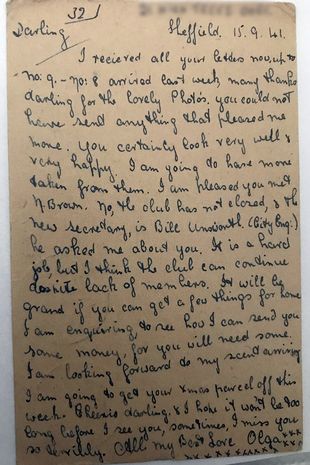 32
Darling Sheffield. 15.9.41.
I recieved all your letters now, up to
no: 9. - No: 8 arrived last week, many thanks
darling for the lovely Photo's, you could not
have sent anything that pleased me
more. You certainly look very well &
very happy. I am going to have more
taken from them. I am pleased you met
N. Brown. No, the club has not closed, & the
new secretary, is Bill Unsworth (City Eng:)
he asked me about you. It is a hard
job, but I think the club can continue
despite lack of members. It will be
grand if you can get a few things for home
I am enquiring to see how I can send you
some money, for you will need some.
I am looking forward to my scent arriving
I am going to get your xmas parcel off this
week. Cheerio darling, & I hope it won't be too
long before I see you, sometimes, I miss you
so terribly. All my Best Love Olga xxx